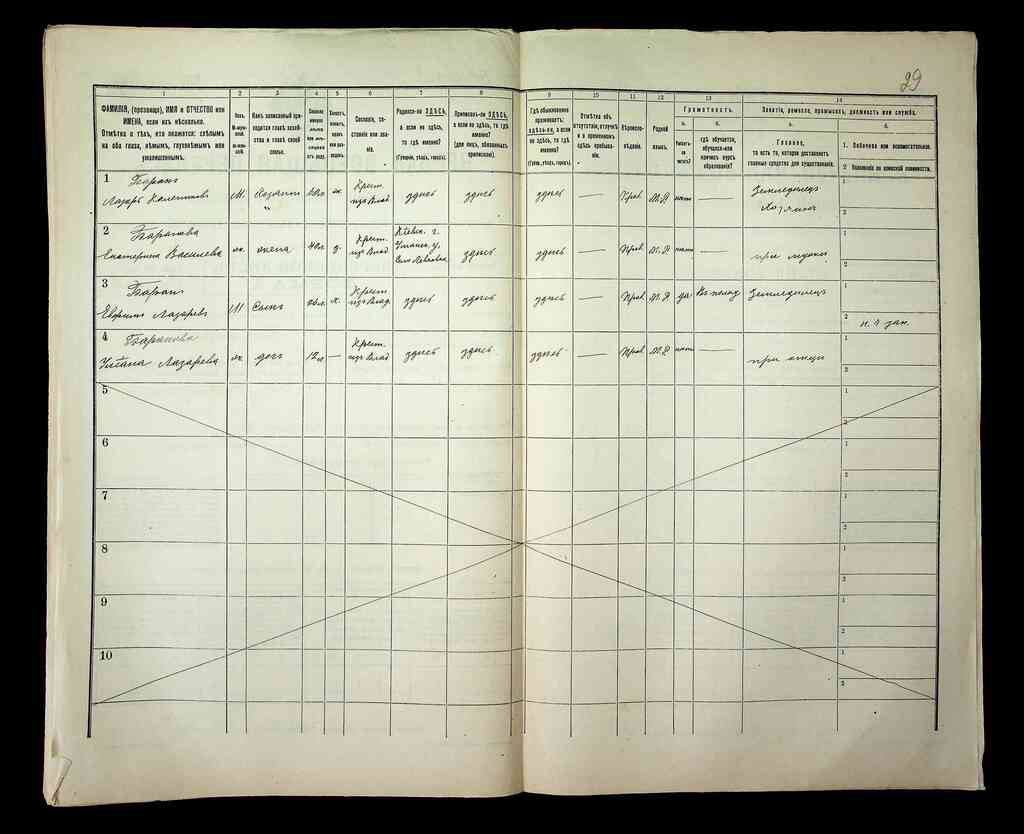 29
1 2 3 4 5 6 7 8 9 10 11 12 13 14
ФАМИЛІЯ, (прозвище), ИМЯ и ОТЧЕСТВО или
ИМЕНА, если ихъ нѣсколько.
Отмѣтка о тѣхъ, кто окажется: слѣпымъ
на оба глаза, нѣмымъ, глухонѣмымъ или
умалишеннымъ.
Полъ.
М-мужской.
Ж-женскій.
Какъ записанный приходится
главѣ хозяйства
и главѣ своей
семьи.
Сословіе, состояніе
или званіе.
Родился-ли ЗДѢСЬ,
а если не здѣсь,
то гдѣ именно?
(Губернія, уѣздъ, городъ).
Приписанъ-ли ЗДѢСЬ,
а если не здѣсь, то гдѣ
именно?
(для лицъ, обязанныхъ
припискою).
Гдѣ обыкновенно
проживаетъ:
здѣсь-ли, а если
не здѣсь, то гдѣ
именно?
(Губ., уѣздъ, городъ).
Отмѣтка объ
отсутствіи, отлучкѣ
и о временномъ
здѣсь пребываніи.
Вѣроисповѣданіе.
Родной
языкъ.
Грамотность.
а. б.
Умѣетъ-ли
читать?
гдѣ обучается,
обучался или
кончилъ курсъ
образованія?
Занятіе, ремесло, промыселъ, должность или служба.
а. б.
Главное,
то есть то, которое доставляетъ
главныя средства для существованія.
1. Побочное или вспомогательное.
2. Положеніе по воинской повинности.
1 Баранъ
Лазарь
М. Хозяинъ
Крест.
изъ Влад.
здѣсь здѣсь здѣсь — Прав. М.Р. нѣтъ —
Земледѣлецъ
Хозяинъ
1
2
2 Баранова
Екатерина Василева
ж. жена 48л. з.
Крест.
изъ Влад.
Кіевск. г.
Уманск. у.
здѣсь здѣсь — Прав. М.Р. нѣтъ —
при мужѣ
1
2
3 Баранъ
Лазаревъ
М Сынъ
Крест.
изъ Влад.
здѣсь здѣсь здѣсь — Прав. М.Р. да
Земледѣлецъ
1
2
4 Баранова
Уліана Лазарева
ж. дочь 12л. —
Крест.
изъ Влад.
здѣсь здѣсь здѣсь — Прав. М.Р. нѣтъ —
при отцѣ
1
2
5 1
2
6 1
2
7 1
2
8 1
2
9 1
2
10 1
2